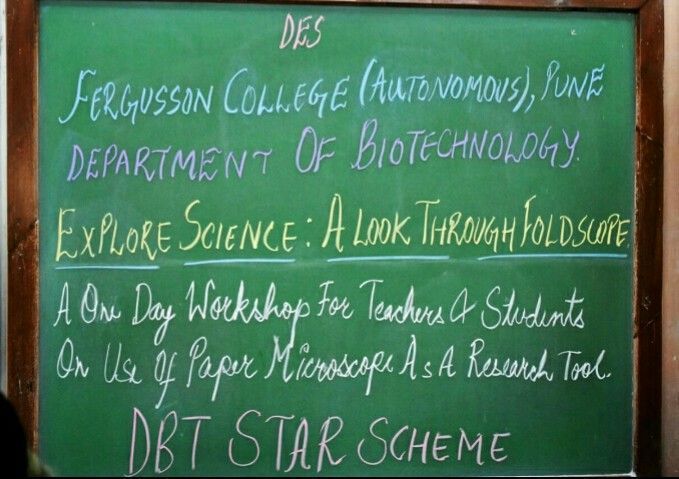 DES
FERGUSSON COLLEGE (AUTONOMOUS), PUNE
DEPARTMENT OF BIOTECHNOLOGY.
EXPLORE SCIENCE: A LOOK THROUGH FOLDSCOPE
A One Day Workshop For Teachers & Students
On Use Of Paper Microscope As A Research Tool.
DBT STAR SCHEME